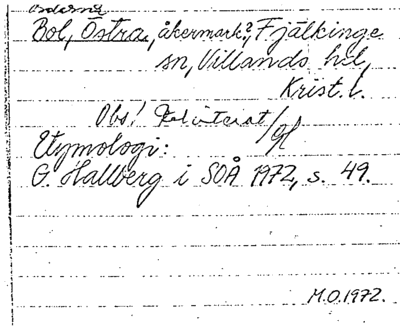 Bol, Östra, åkermark?, Fjälkinge
sn, Villands hd,
Krist. l.
Obs!
Etymologi:
G. Hallberg i SOÅ 1972, s. 49.
M.O. 1972.